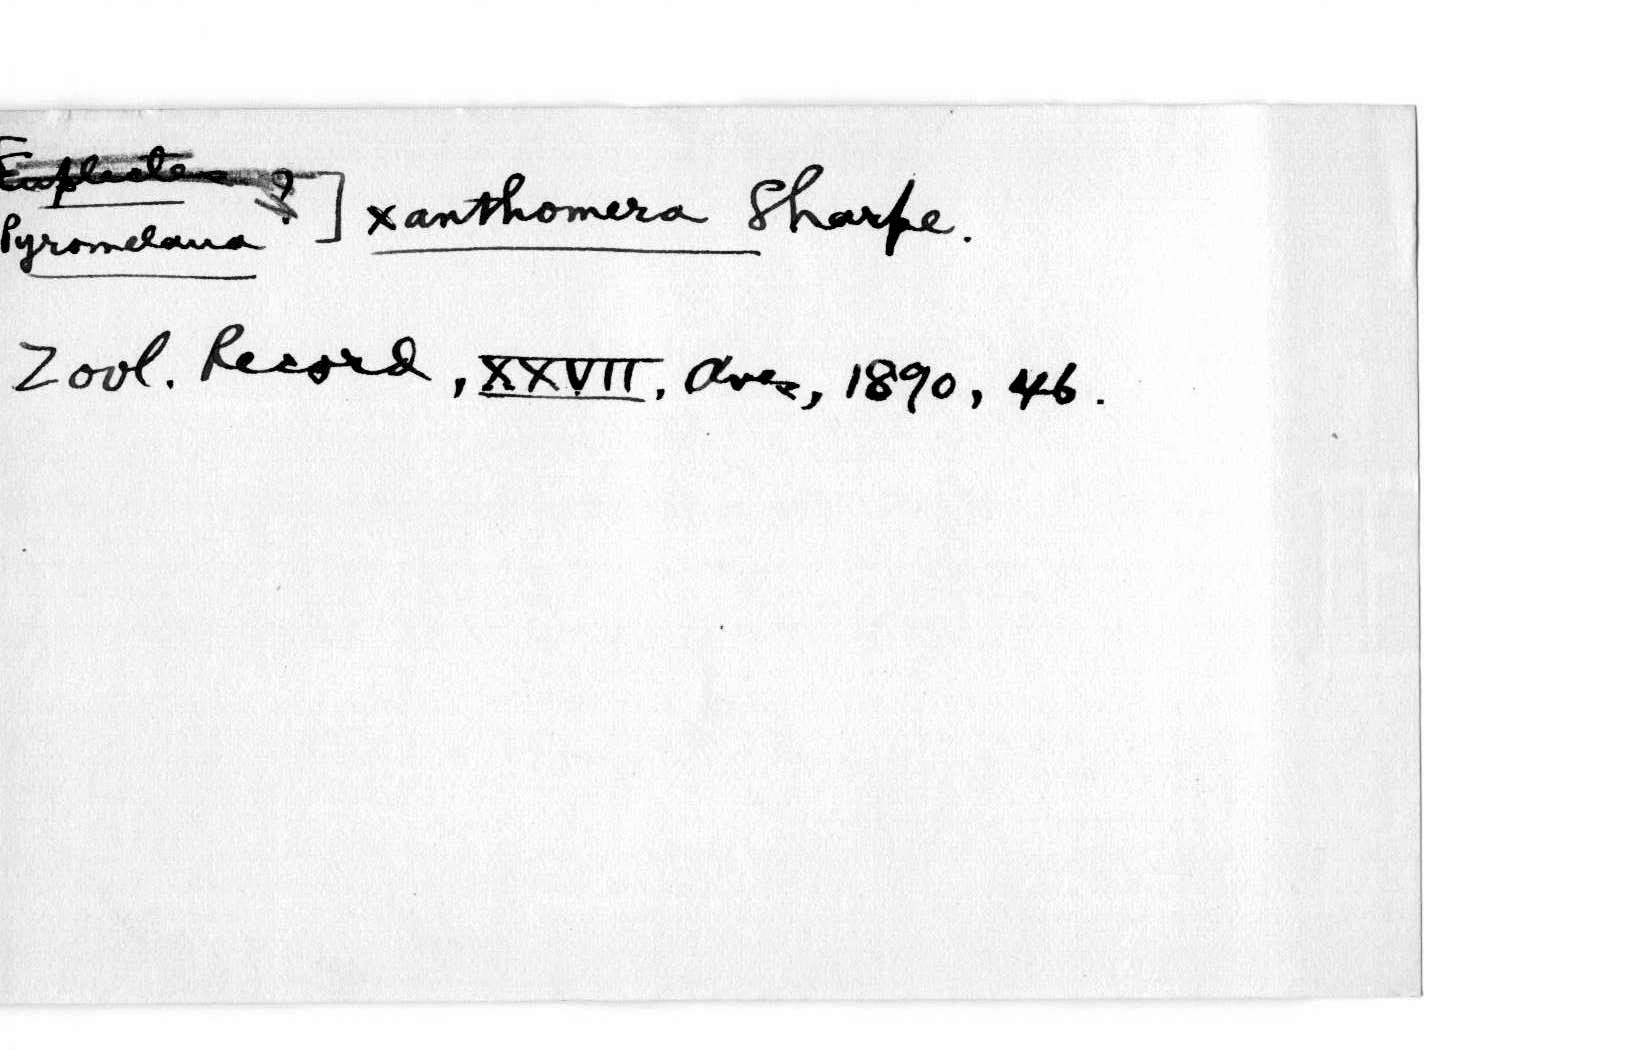 Euplectes ?
Pyromelana ] xanthomera Sharpe.
Zool. Record, XXVII, Aves, 1890, 46.